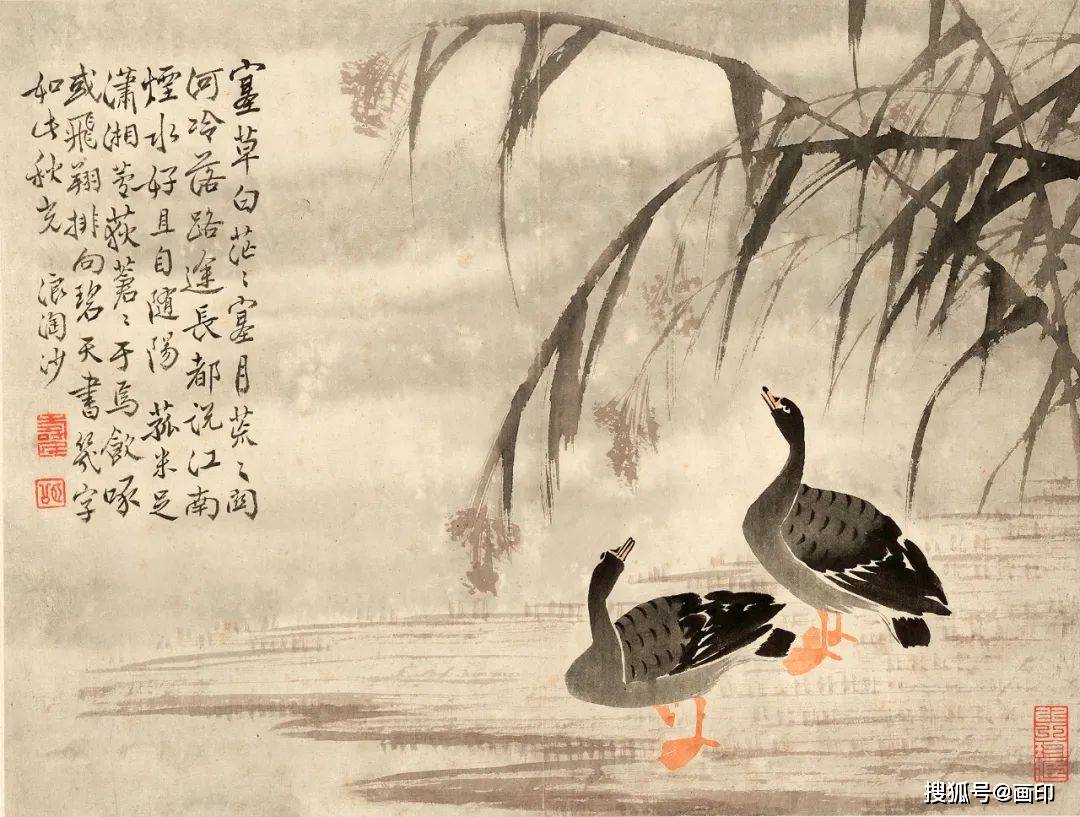 塞草白茫〻塞月荒〻関
河冷落路途長都说江南
煙水好且自随陽 菰米足
瀟湘芦荻蒼〻于焉飲啄
或飛翔排向碧天書幾字
如此秋光 浪淘沙
搜狐号@画印